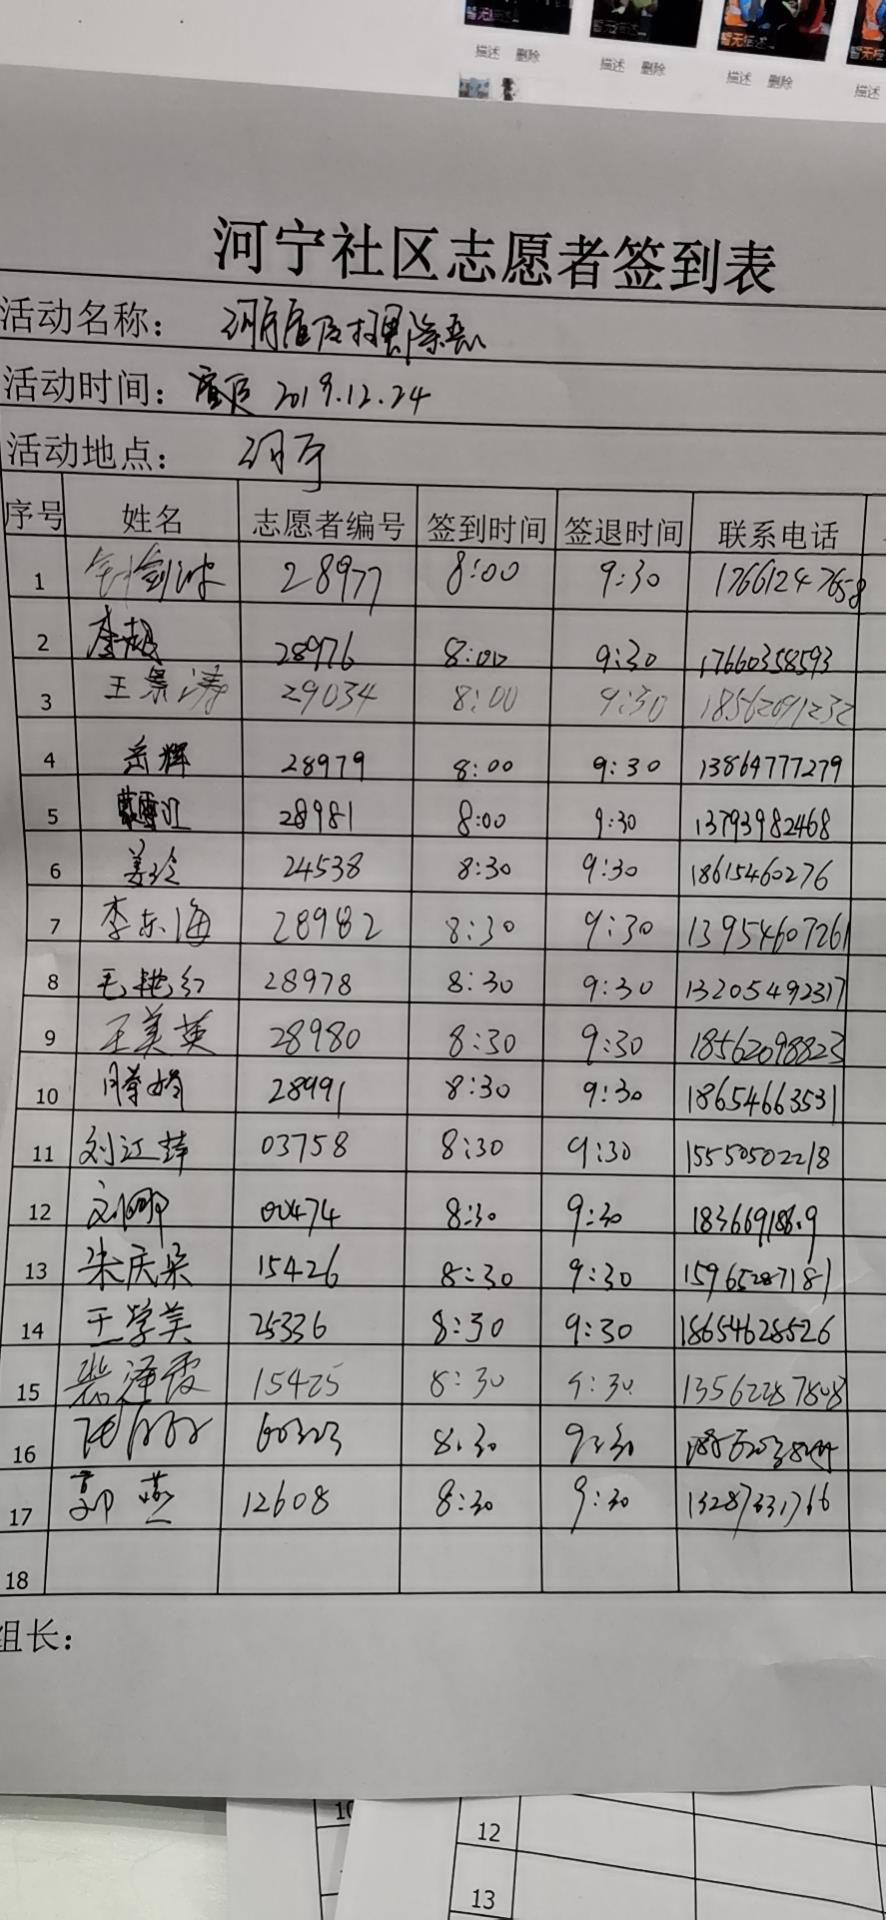 描述 删除
描述 删除
描述 删除
描述
河宁社区志愿者签到表
活动名称：
活动时间： 2019.12.24
活动地点： 河宁
序号 姓名 志愿者编号 签到时间 签退时间 联系电话
1 28977 8:00 9:30 17661247658
2 李超 28976 8:00 9:30 17660358593
3 王景涛 29034 8:00 9:30 18562091232
4 岳辉 28979 8:00 9:30 13864777279
5 28981 8:00 9:30 13793982468
6 姜玲 24538 8:30 9:30 18615460276
7 李东海 28982 8:30 9:30 13954607261
8 毛艳红 28978 8:30 9:30 13205492317
9 王美英 28980 8:30 9:30 18562098823
10 28991 8:30 9:30 18654663531
11 刘江萍 03758 8:30 9:30 15550502218
12 00474 8:30 9:30
13 朱庆朵 15426 8:30 9:30 15965287181
14 王学美 25336 8:30 9:30 18654628526
15 裴泽霞 15425 8:30 9:30 13562287808
16 8:30 9:30
17 郭燕 12608 8:30 9:30 13287331766
18
组长：
10
12
13